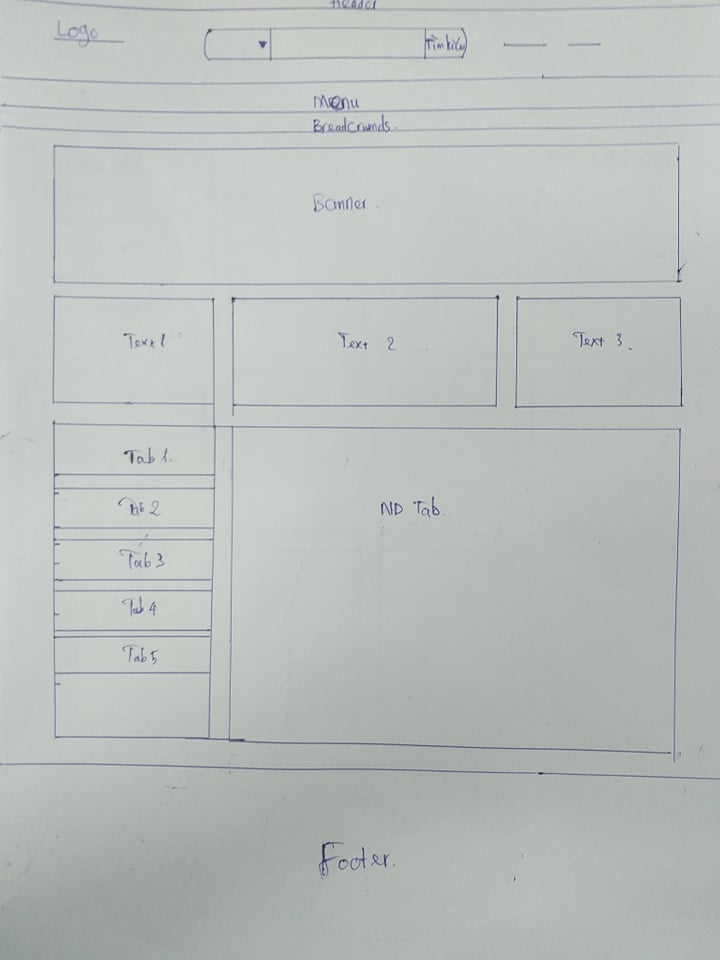 Header
Logo
Tìm kiếm
Menu
Breadcrumds.
Banner.
Text 1
Text 2
Text 3.
Tab 1.
Tab 2
Tab 3
Tab 4
Tab 5
ND Tab.
Footer.